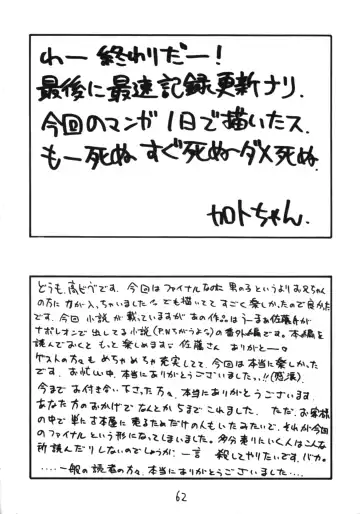 わー 終わりだー!
最後に最速記録更新ナリ.
今回のマンガ1日で描いたス.
もー死ぬ すぐ死ぬ〜ダメ死ぬ.
カロトちゃん.
どうも、高ピヴです。今回はファイナルなのに 男の子というよりお兄ちゃん
の方に力が入っちゃいました。でも描いててすごく楽しかったので自分的
です。今回 小説が載っていますがあの作品はうーまぁ佐藤
ナポレオンで出してる小説(P.Nちがうよな)の番外編です。本編を
読んでおくと もっと楽しめます。佐藤さん ありがとー。
ゲストの方々も めちゃめちゃ充実してて、今回は本当に楽しかった
です。お忙しい中、本当にありがとうございましたっ!!(感涙)
今までお付き合い下さった方々、本当にありがとうございます。
あなた方のおかげでなんとか5までこれました。ただ、お客様
の中で単にす本屋に売るためだけの人もいたみたいで、それが今回
のファイナルという形になってしまいました。多分売りにいく人はこんな
所読んだりしないのでしょうが、一言 殺してやりたいです。バカ。
....一般の読者の方々、本当にありがとうございました....
62